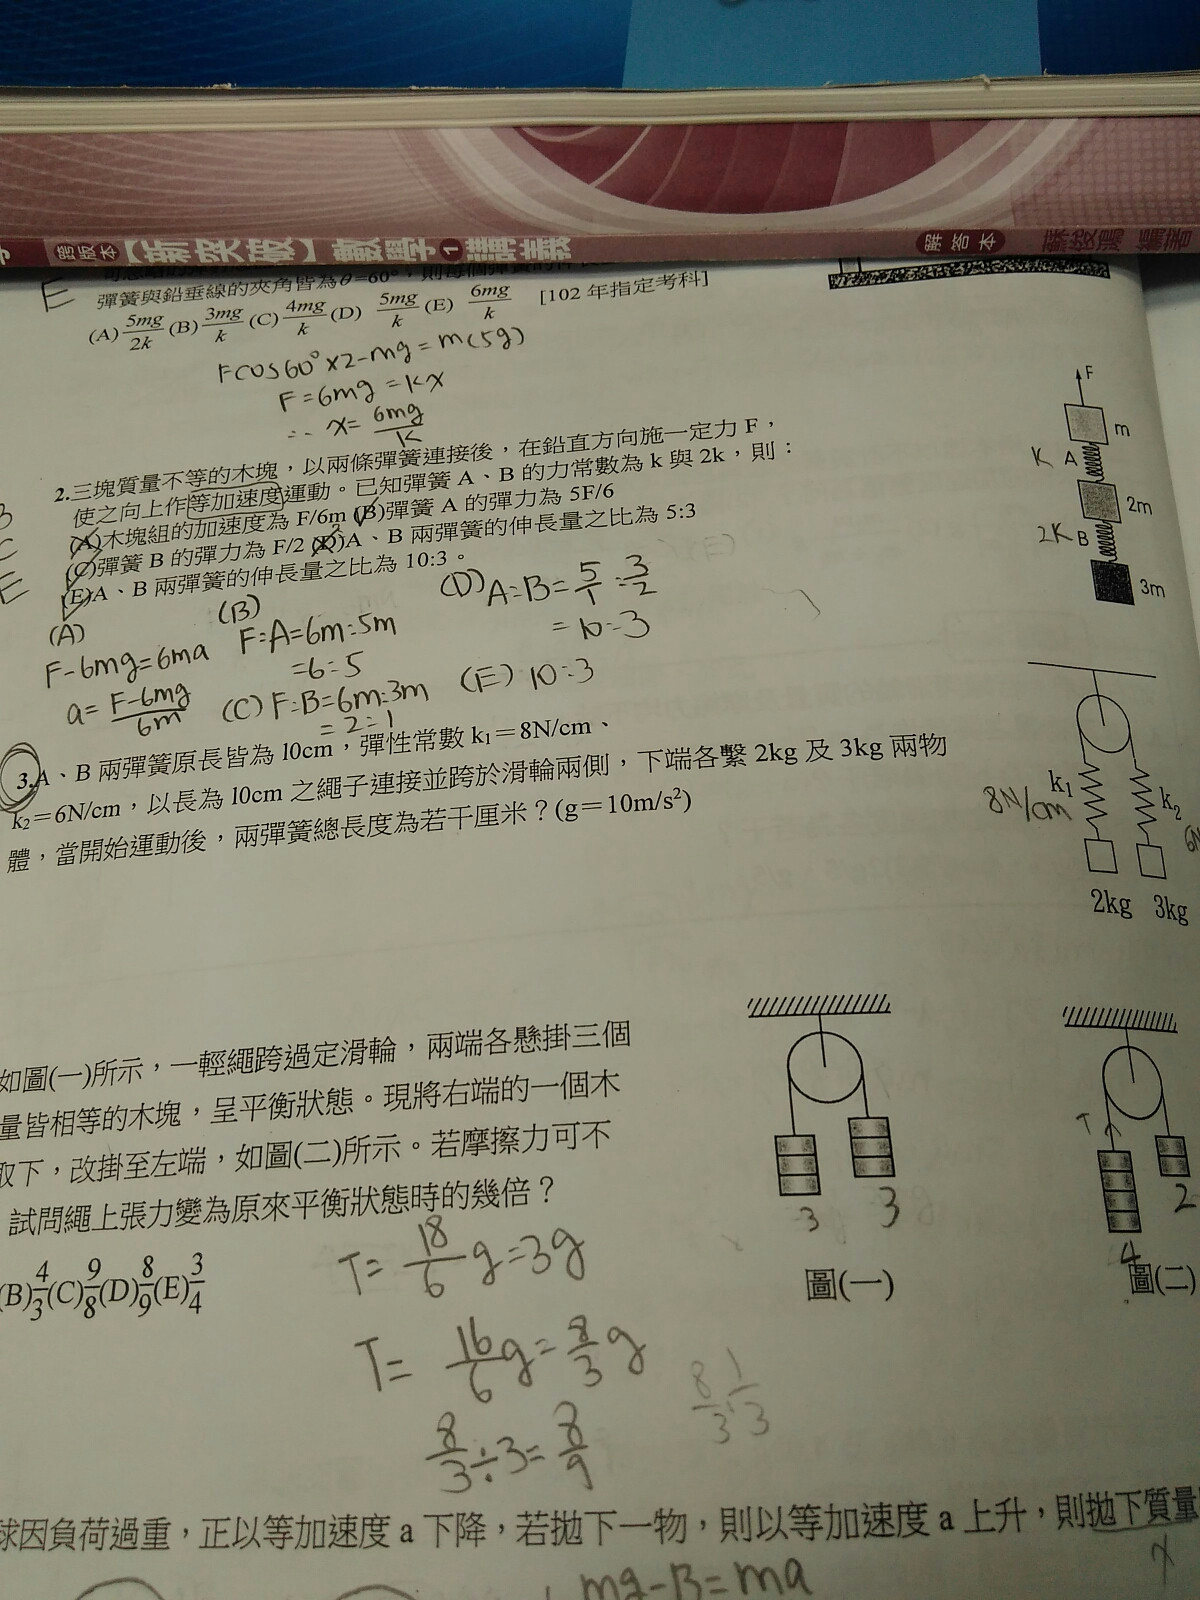 跨版本【新突破】數學1講義
解答本
E
彈簧與鉛垂線的夾角皆為θ=60°，則每個彈簧的
(A)5mg/2k (B)3mg/k (C)4mg/k (D) 5mg/k (E) 6mg/k [102年指定考科]
Fcos60°×2-mg=m(5g)
F=6mg=kx
∴ x=6mg/k
2.三塊質量不等的木塊，以兩條彈簧連接後，在鉛直方向施一定力 F，
使之向上作等加速度運動。已知彈簧 A、B 的力常數為 k 與 2k，則：
(A)木塊組的加速度為 F/6m (B)彈簧 A 的彈力為 5F/6
(C)彈簧 B 的彈力為 F/2 (D)A、B 兩彈簧的伸長量之比為 5:3
(E)A、B 兩彈簧的伸長量之比為 10:3。
B
C
E
F
m
K A
2m
2K B
3m
(A)
F-6mg=6ma
a=F-6mg/6m
(B)
F:A=6m:5m
=6:5
(C) F:B=6m:3m
=2:1
(D)A:B=5/1:3/2
=10:3
(E) 10:3
3.A、B 兩彈簧原長皆為 10cm，彈性常數 k₁＝8N/cm、
k₂＝6N/cm，以長為 10cm 之繩子連接並跨於滑輪兩側，下端各繫 2kg 及 3kg 兩物
體，當開始運動後，兩彈簧總長度為若干厘米？(g＝10m/s²)
8N/cm
k₁
k₂
2kg 3kg
如圖(一)所示，一輕繩跨過定滑輪，兩端各懸掛三個
量皆相等的木塊，呈平衡狀態。現將右端的一個木
取下，改掛至左端，如圖(二)所示。若摩擦力可不
試問繩上張力變為原來平衡狀態時的幾倍？
(B)4/3(C)9/8(D)8/9(E)3/4
3
3
圖(一)
T
4
2
圖(二)
T=18/6g=3g
T=16/6g=8/3g
8/3÷3=8/9
8/3·1/3
球因負荷過重，正以等加速度 a 下降，若拋下一物，則以等加速度 a 上升，則拋下質量
mg-B=ma